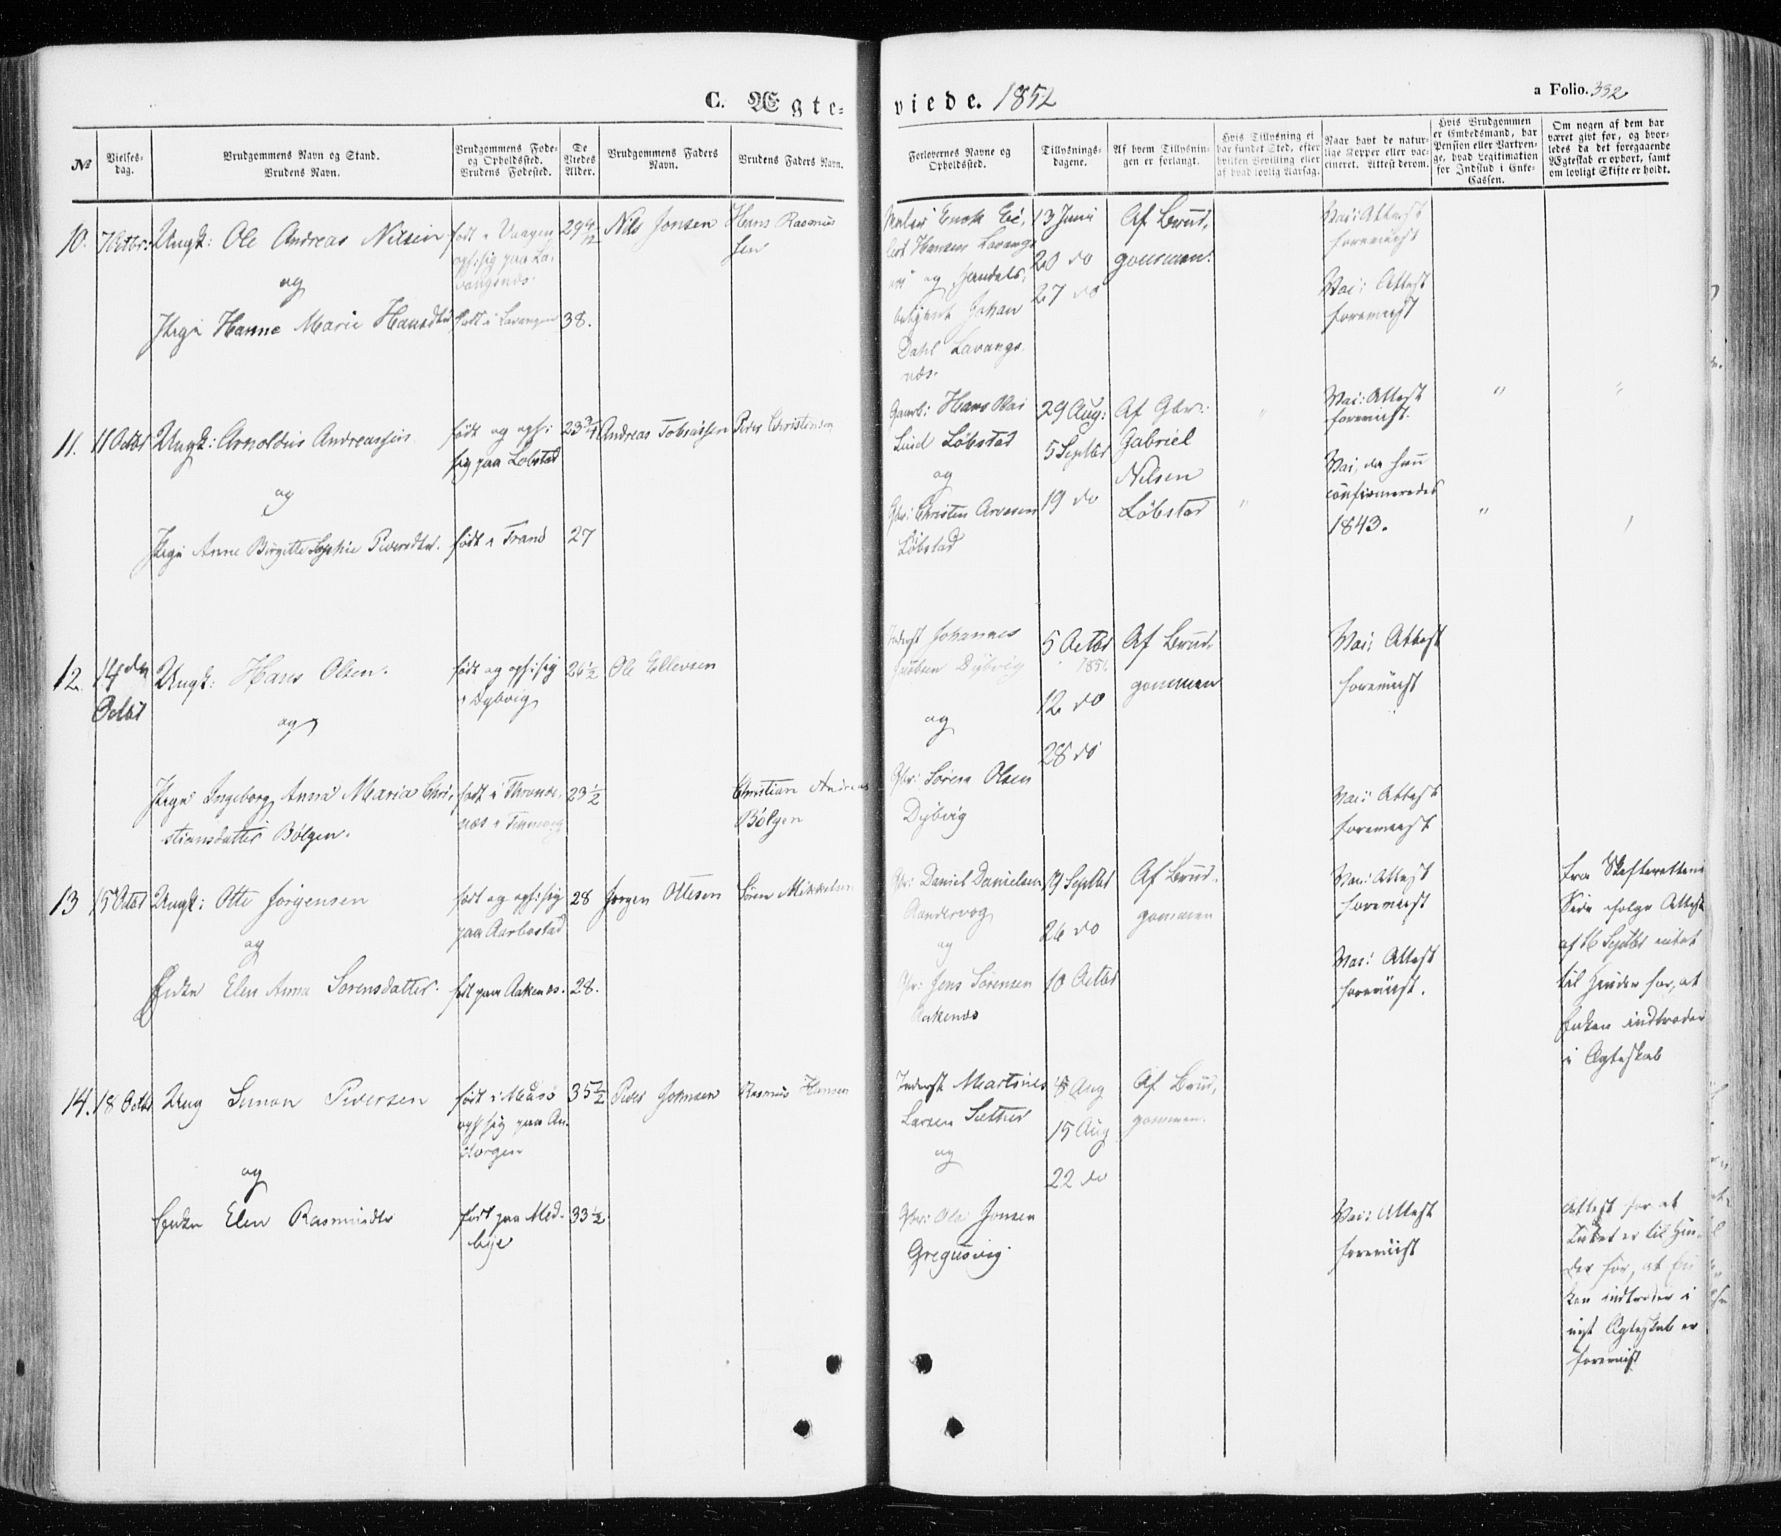 C. Ægte-
viede. 1852
a Folio. 332
№
Vielses-
dag.
Brudgommens Navn og Stand.
Brudens Navn.
Brudgommens Føde-
og Opholdssted.
Brudens Fødested.
De
Viedes
Alder.
Brudgommens Faders
Navn.
Brudens Faders Navn.
Forlovernes Navne og
Opholdssted.
Tillysnings-
dagene.
Af hvem Tillysnin-
gen er forlangt.
Hvis Tillysning ei
har fundet Sted, efter
hvilken Bevilling eller
af hvad lovlig Aarsag.
Naar havt de natur-
lige Kopper eller vac-
cineret. Attest derom.
Hvis Brudgommen
er Embedsmand, har
Pension eller Vartpen-
ge, hvad Legitimation
for Indskud i Enke-
Cassen.
Om nogen af dem har
været gift før, og hvor-
ledes da det foregaaende
Ægteskab er ophørt, samt
om lovligt Skifte er holdt.
10.
Ungk: Ole Andreas Nilsen
og
Pige Hanne Marie Hansdtr
født i
opf: sig paa La-
vangsnæs.
født i Lavangen
29
38.
Nils Jonsen
Hans Rasmus
sen
Hansen Lavangs
og Handels-
Johan
Dahl Lavangs
næs.
13 Juni
20 do
27 do
Af Brud-
gommen.
Vac: Attest
foreviist
Vac: Attest
foreviist
11. 11 Octbr
Ungk: Arnoldus Andreassen
og
Pige Anne Birgitte Sophie Pedersdtr.
født og opf:
sig paa Løbstad
født i Trand
23¾
27
Andreas Tobiassen
Peder Christensen
Gaarb: Hans
Lind Løbstad
og
Gbr: Christen Arnesen
Løbstad
29 Aug:
5 Septbr
19 do
Af Gbr:
Gabriel
Nilsen
Løbstad
Vac: Attest
foreviist.
Vac, da hun
confirmeredes
1843.
12. 14 den
Octbr
Ungk: Hans Olsen.
og
Pige Ingeborg Anna Maria Chri-
stiansdatter Bølgen.
født og opf: sig
i Dybvig
født i Thronde-
næs i
26½
23½
Ole Ellevsen
Christian Andreas
Bølgen
Inderst Johannes
Jacobsen Dybvig
og
Gbr: Søren Olsen
Dybvig
5 Octbr
1851.
12 do
28 do
Af Brud-
gommen
Vac: Attest
foreviist
Vac: Attest
foreviist
13 15 Octbr
Ungk: Otte Jørgensen
og
Enke Elen Anna Sørensdatter.
født og opf: sig
paa Aarbostad
født paa Aakenæs.
28
28.
Jørgen Ottesen
Sören Mikkelsen
Gbr: Daniel Danielsen
Sandervog
og
Gbr: Jens Sørensen
Aakenæs
19 Septbr
26 do
10 Octbr
Af Brud-
gommen
Vac: Attest
foreviist
Vac: Attest
foreviist.
Fra Skifterettens
Side ifølge Attest
af 16 Septbr intet
til Hinder for, at
Enken indtræder
i Ægteskab
14. 18 Octbr
Ung Simon Pedersen
og
Enke Elen Rasmusdtr
født i Måsø
opf sig paa An-
storgen
født paa Med-
bye
35½
33½
Peder Johnsen
Rasmus Hansen
Inderst Martinus
Larsen Sæther
og
Gbr: Ole Jonsen
Gregusvig.
8 Aug
15 Aug
22 do
Af Brud-
gommen.
Vac: Attest
foreviist
Attest for at
Intet er til Hin-
der for, at En-
ken indtræder i
nyt Ægteskab er
foreviist